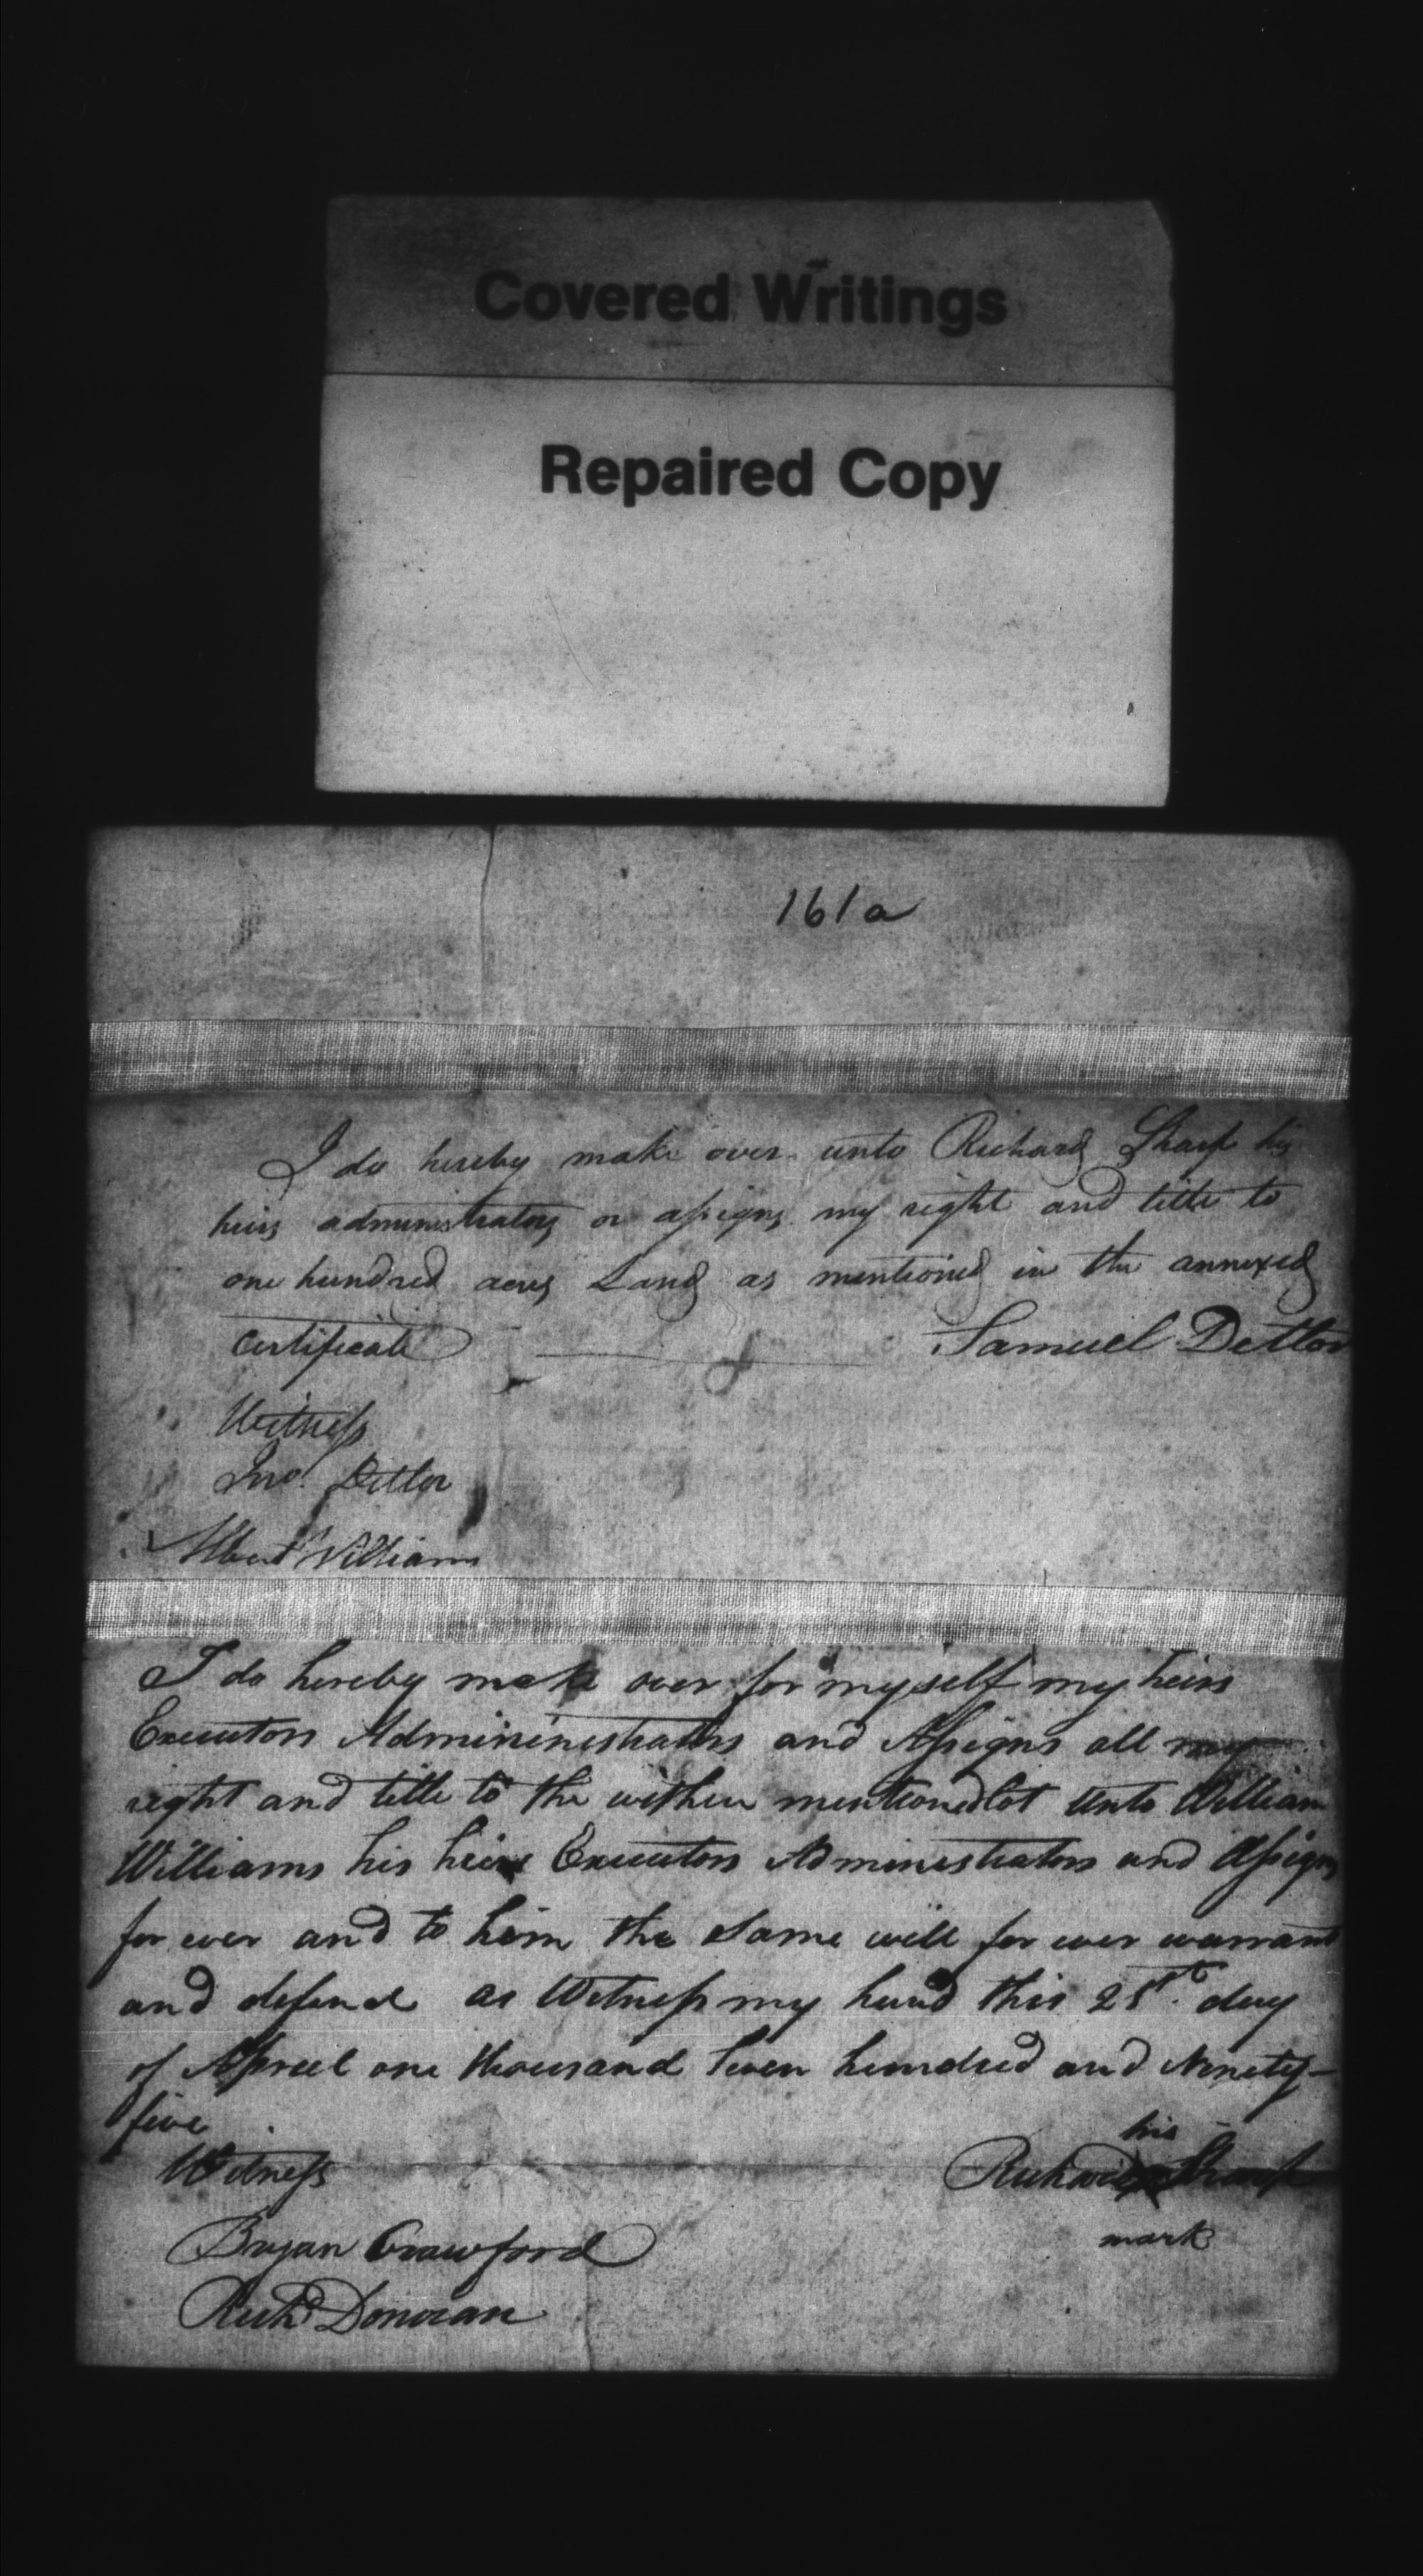 Covered Writings
Repaired Copy
161a
I do hereby make over unto Richard Sharp his
heirs administrators or assigns my right and title to
one hundred acres Land as mentioned in the annexed
certificate Samuel Detlor
Witness
Jno. Detlor
Albert Williams
I do hereby make over for myself my heirs
Executors Admininistrators and Assigns all my
right and title to the within mentioned lot unto William
Williams his heirs Executors Administrators and Assigns
for ever and to him the same will for ever warrant
and defend as Witness my hand this 25th. day
of Apreel one thousand Seven hundred and Ninety-
five
his
Witness Richard X Sharp
mark
Bryan Crawford
Richd Donovan